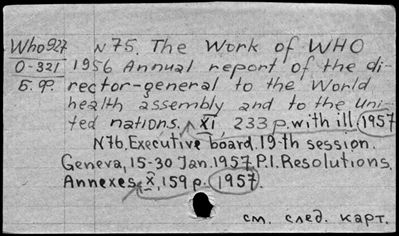 Who927 N75. The Work of WHO
0-321 1956 Annual report of the di-
Б.Ф. rector-general to the World
health assembly and to the Uni-
ted nations. XI, 233 p. with ill. 1957
N76. Executive board. 19-th session.
Geneva, 15-30 Jan. 1957. P.I. Resolutions.
Annexes. X, 159 p. 1957.
см. след. карт.